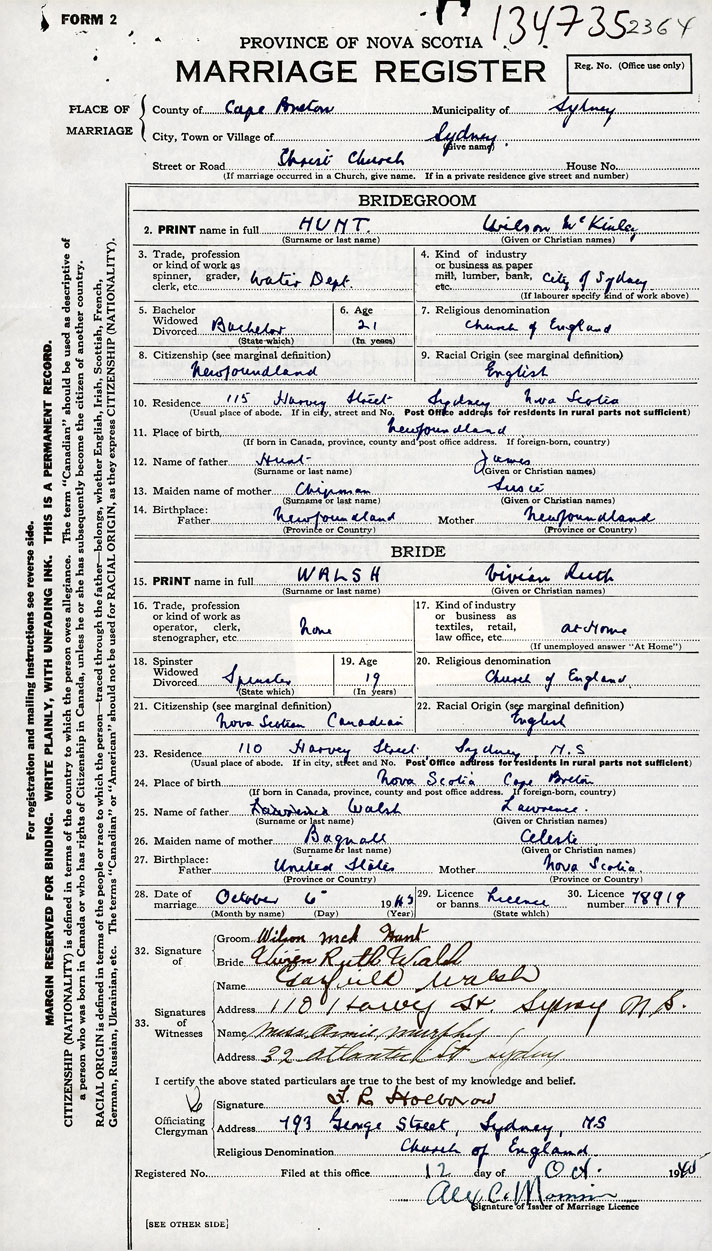 FORM 2
134735 2364
PROVINCE OF NOVA SCOTIA
MARRIAGE REGISTER
Reg. No. (Office use only)
PLACE OF MARRIAGE
County of Cape Breton Municipality of Sydney
City, Town or Village of Sydney
(Give name)
Street or Road Christ Church House No.
(If marriage occurred in a Church, give name. If in a private residence give street and number)
BRIDEGROOM
2. PRINT name in full HUNT. Wilson McKinley
(Surname or last name) (Given or Christian names)
3. Trade, profession or kind of work as spinner, grader, clerk, etc. Water Dept.
4. Kind of industry or business as paper mill, lumber, bank, etc. City of Sydney
(If labourer specify kind of work above)
5. Bachelor Widowed Divorced Bachelor
(State which)
6. Age 21
(In years)
7. Religious denomination
Church of England
8. Citizenship (see marginal definition)
Newfoundland
9. Racial Origin (see marginal definition)
English
10. Residence 115 Harvey Street Sydney Nova Scotia
(Usual place of abode. If in city, street and No. Post Office address for residents in rural parts not sufficient)
11. Place of birth Newfoundland
(If born in Canada, province, county and post office address. If foreign-born, country)
12. Name of father Hunt James
(Surname or last name) (Given or Christian names)
13. Maiden name of mother Chipman Susie
(Surname or last name) (Given or Christian names)
14. Birthplace:
Father Newfoundland Mother Newfoundland
(Province or Country) (Province or Country)
BRIDE
15. PRINT name in full WALSH Vivian Ruth
(Surname or last name) (Given or Christian names)
16. Trade, profession or kind of work as operator, clerk, stenographer, etc. None
17. Kind of industry or business as textiles, retail, law office, etc. at Home
(If unemployed answer "At Home")
18. Spinster Widowed Divorced Spinster
(State which)
19. Age 19
(In years)
20. Religious denomination
Church of England
21. Citizenship (see marginal definition)
Nova Scotian Canadian
22. Racial Origin (see marginal definition)
English
23. Residence 110 Harvey Street Sydney N.S
(Usual place of abode. If in city, street and No. Post Office address for residents in rural parts not sufficient)
24. Place of birth Nova Scotia Cape Breton
(If born in Canada, province, county and post office address. If foreign-born, country)
25. Name of father Walsh Lawrence.
(Surname or last name) (Given or Christian names)
26. Maiden name of mother Bagnall Celeste
(Surname or last name) (Given or Christian names)
27. Birthplace:
Father United States Mother Nova Scotia.
(Province or Country) (Province or Country)
28. Date of marriage October 6 19
(Month by name) (Day) (Year)
29. Licence or banns Licence
(State which)
30. Licence number 78919
32. Signature of
Groom Wilson McK Hunt
Bride Vivien Ruth Walsh
33. Signatures of Witnesses
Name Garfield Walsh
Address 110 Harvey St. Sydney N.S.
Name Murphy
Address 32 Atlantic St Sydney
I certify the above stated particulars are true to the best of my knowledge and belief.
Officiating Clergyman
Signature
Address 793 George Street, Sydney, NS
Religious Denomination Church of England
Registered No. Filed at this office 12 day of Oct. 19
Signature of Issuer of Marriage Licence
[SEE OTHER SIDE]
For registration and mailing instructions see reverse side.
MARGIN RESERVED FOR BINDING. WRITE PLAINLY, WITH UNFADING INK. THIS IS A PERMANENT RECORD.
CITIZENSHIP (NATIONALITY) is defined in terms of the country to which the person owes allegiance. The term "Canadian" should be used as descriptive of
a person who was born in Canada or who has rights of Citizenship in Canada, unless he or she has subsequently become the citizen of another country.
RACIAL ORIGIN is defined in terms of the people or race to which the person—traced through the father—belongs, whether English, Irish, Scottish, French,
German, Russian, Ukrainian, etc. The terms "Canadian" or "American" should not be used for RACIAL ORIGIN, as they express CITIZENSHIP (NATIONALITY).